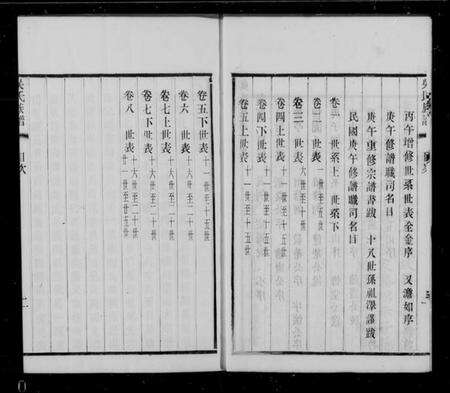 丙午增修世系世表全金序　又澹如序
庚午修譜職司名目
庚午重修宗譜書跋　十八世孫祖澤謹跋
民國庚午修譜職司名目
卷一　世系上　世系下
卷二　世表　一世至五世
卷三　世表　六世至十世
卷四上世表　十一世至十五世
卷四下世表　十一世至十五世
卷五上世表　十一世至十五世
卷五下世表　十一世至十五世
卷六　世表　十六世至二十世
卷七上世表　十六世至二十世
卷七下世表　十六世至二十世
卷八　世表　廿一世至廿五世
吳氏族譜　目次